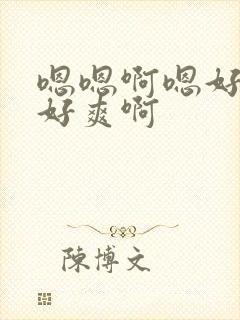 嗯嗯啊嗯好
好爽啊
陳博文